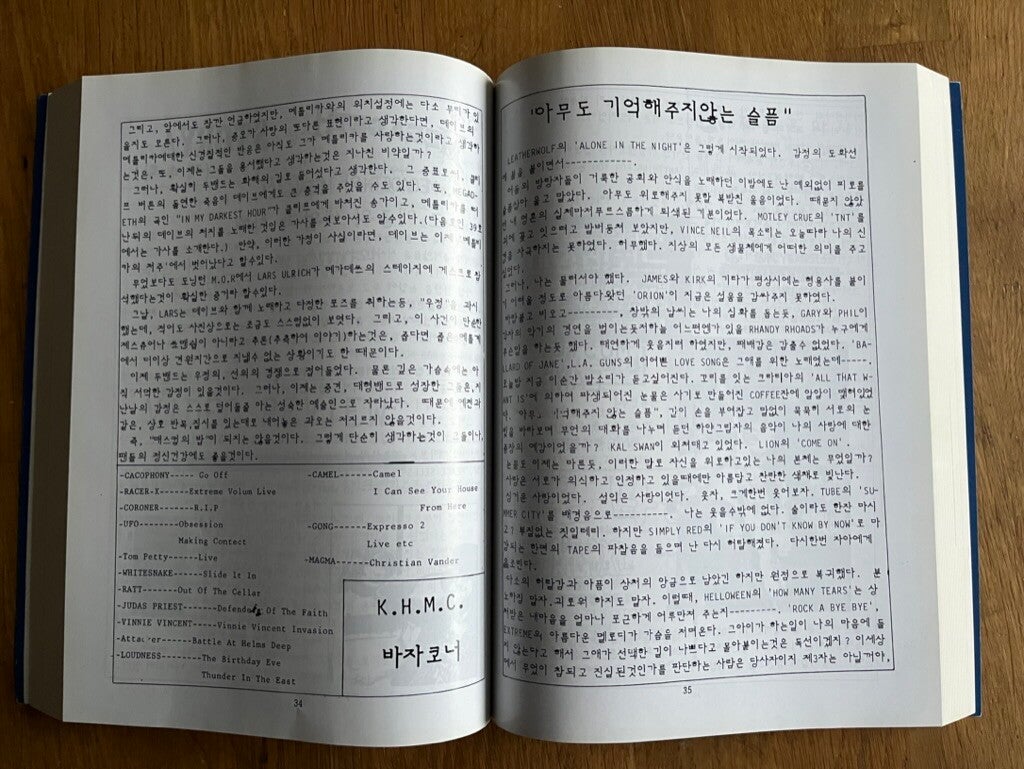 그리고, 앞에서도 잠깐 언급하였지만, 메틀리카와의 위치설정에는 다소 무리가 있
을지도 모른다. 그러나, 증오가 사랑의 또다른 표현이라고 생각한다면, 데이브의
메틀리카에대한 신경질적인 반응은 아직도 그가 메틀리카를 사랑하는것이라고 생각하
는것은, 또, 이제는 그들을 용서했다고 생각하는것은 지나친 비약일까?
그러나, 확실히 두밴드는 화해의 길로 들어섰다고 생각한다. 그 증표로써, 클리
프 버튼의 돌연한 죽음이 데이브에게도 큰 충격을 주었을 수도 있다. 또, MEGAD-
ETH의 곡인 "IN MY DARKEST HOUR"가 클리프에게 바쳐진 송가이고, 메틀리카를 떠
난뒤의 데이브의 처지를 노래한 것임은 가사를 엿보아서도 알수있다.(다음 39호
에서는 가사를 소개한다.) 만약, 이러한 가정이 사실이라면, 데이브는 이제 메틀리
카의 저주'에서 벗어났다고 할수있다.
무엇보다도 도닝턴 M.O.R에서 LARS ULRICH가 메가데쓰의 스테이지에 게스트로 참
석했다는것이 확실한 증거라 할수있다.
그날, LARS는 데이브와 함께 노래하고 다정한 포즈를 취하는등, "우정"을 과시
했는데, 적어도 사진상으로는 조금도 스스럼없이 보였다. 그리고, 이 사건이 단순한
제스츄어나 쏘맨쉽이 아니라고 추론(추측하여 이야기)하는것은, 좁다면 좁은 메틀계
에서 더이상 견원지간으로 지낼수 없는 상황이기도 한 때문이다.
이제 두밴드는 우정의, 선의의 경쟁으로 접어들었다. 물론 깊은 가슴속에는 아
직 서먹한 감정이 있을것이다. 그러나, 이제는 중견, 대형밴드로 성장한 그들은,지
난날의 감정은 스스로 덮어둘줄 아는 성숙한 예술인으로 자라났다. 때문에 예전과
같은, 상호 반목,질시를 있는대로 내어놓은 과오는 저지르지 않을것이다.
즉, "매스컴의 밥"이 되지는 않을것이다. 그렇게 단순히 생각하는것이 그들이나,
팬들의 정신건강에도 좋을것이다.
-CACOPHONY----- Go Off
-RACER-X-----Extreme Volum Live
-CORONER------R.I.P
-UFO-------Obsession
Making Contect
-Tom Petty-----Live
-WHITESNAKE------Slide It In
-RATT------Out Of The Cellar
-JUDAS PRIEST------Defenders Of The Faith
-VINNIE VINCENT-----Vinnie Vincent Invasion
-Attacker------Battle At Helms Deep
-LOUDNESS------The Birthday Eve
Thunder In The East
-CAMEL------Camel
I Can See Your House
From Here
-GONG------Expresso 2
Live etc
-MAGMA------Christian Vander
K.H.M.C.
바자코너
34
"아무도 기억해주지않는 슬픔"
LEATHERWOLF의 'ALONE IN THE NIGHT'은 그렇게 시작되었다. 감정의 도화선
에 불을 붙이면서------------.
어둠의 방랑자들이 거룩한 공회와 안식을 노래하던 이밤에도 난 예외없이 피로를
울고 말았다. 아무도 위로해주지 못할 북받친 울음이었다. 때묻지 않았
내 영혼의 실체마저푸르스름하게 퇴색된 기분이었다. MOTLEY CRUE의 'TNT'를
귀에 꽂고 있으려고 발버둥쳐 보았지만, VINCE NEIL의 목소리는 오늘따라 나의 신
경을 자극하지는 못하였다. 허무했다. 지상의 모든 생물체에게 어떠한 의미를 주고
있었다.
그러나, 나는 물러서야 했다. JAMES와 KIRK의 기타가 평상시에는 형용사를 붙이
기 어려울 정도로 아름다왔던 'ORION'이 지금은 설움을 감싸주지 못하였다.
바람불고 비오고----------, 창밖의 날씨는 나의 심화를 돕는듯, GARY와 PHIL이
각자의 악기의 경연을 법이는듯저하늘 어느편엔가 있을 RHANDY RHOADS가 누구에게
손짓을 하는듯 했다. 태연하게 웃음지려 하였지만, 패배감은 감출수 없었다. 'BA-
LLARD OF JANE',L.A. GUNS의 어여쁜 LOVE SONG은 그애를 위한 노래였는데-----.
오늘밤 지금 이순간 밥소리가 듣고싶어진다. 꼬리를 잇는 크라티아의 'ALL THAT W-
ANT IS'에 의하여 파생되어진 눈물은 사기로 만들어진 COFFEE잔에
다. '아무도 기억해주지 않는 슬픔", 같이 손을 부여잡고 말없이 묵묵히 서로의 눈
빛을 바라보며 무언의 대화를 나누며 듣던 하얀그림자의 음악이 나의 사랑에 대한
종장의 예감이었을까? KAL SWAN이 외쳐대고 있었다. LION의 'COME ON'.
눈물도 이제는 마른듯, 이러한 말로 자신을 위로하고있는 나의 본체는 무엇일까?
사랑은 서로가 의식하고 인정하고 있을때에만 아름답고 찬란한 색채로 빛난다.
싱거운 사랑이었다. 설익은 사랑이었다. 웃자, 크게한번 웃어보자, TUBE의 'SU-
MMER CITY'를 배경음으로----------. 나는 웃을수밖에 없다. 술이라도 한잔 마시
고? 부질없는 짓일테지. 하지만 SIMPLY RED의 'IF YOU DON'T KNOW BY NOW'로 마
감되는 한면의 TAPE의 파찰음을 들으며 난 다시 허탈해졌다. 다시한번 자아에게
다소의 허탈감과 아픔이 상처의 앙금으로 남았긴 하지만 원점으로 복귀했다. 분
노하질 말자.괴로워 하지도 말자. 이럴때, HELLOWEEN의 'HOW MANY TEARS'는 상
처받은 내마음을 얼마나 포근하게 어루만져 주는지---------. 'ROCK A BYE BYE',
EXTREME의 아름다운 멜로디가 가슴을 저며온다. 그아이가 하는일이 나의 마음에 들
지 않는다고 해서 그애가 선택한 길이 나쁘다고 몰아붙이는것은 독선이겠지? 이세상
에서 무엇이 참되고 진실된것인가를 판단하는 사람은 당사자이지 제3자는 아닐꺼야,
35